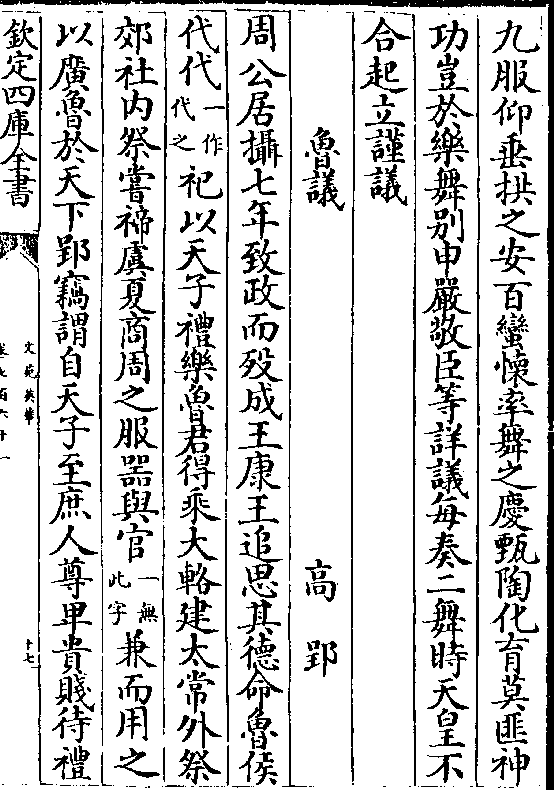 九服仰垂拱之安百蠻懷率舞之慶甄陶化育莫匪神
功豈於樂舞别申嚴敬臣等詳議每奏二舞時天皇不
合起立謹議
魯議　　　　　　　　高郢
周公居攝七年致政而殁成王康王追思其德命魯侯
代代一作代之祀以天子禮樂魯君得乘大輅建太常外祭
郊社内祭嘗禘虞夏商周之服器與官一無此字兼而用之
以廣魯於天下郢竊謂自天子至庶人尊卑貴賤待禮
欽定四庫全書
文苑英華
十七